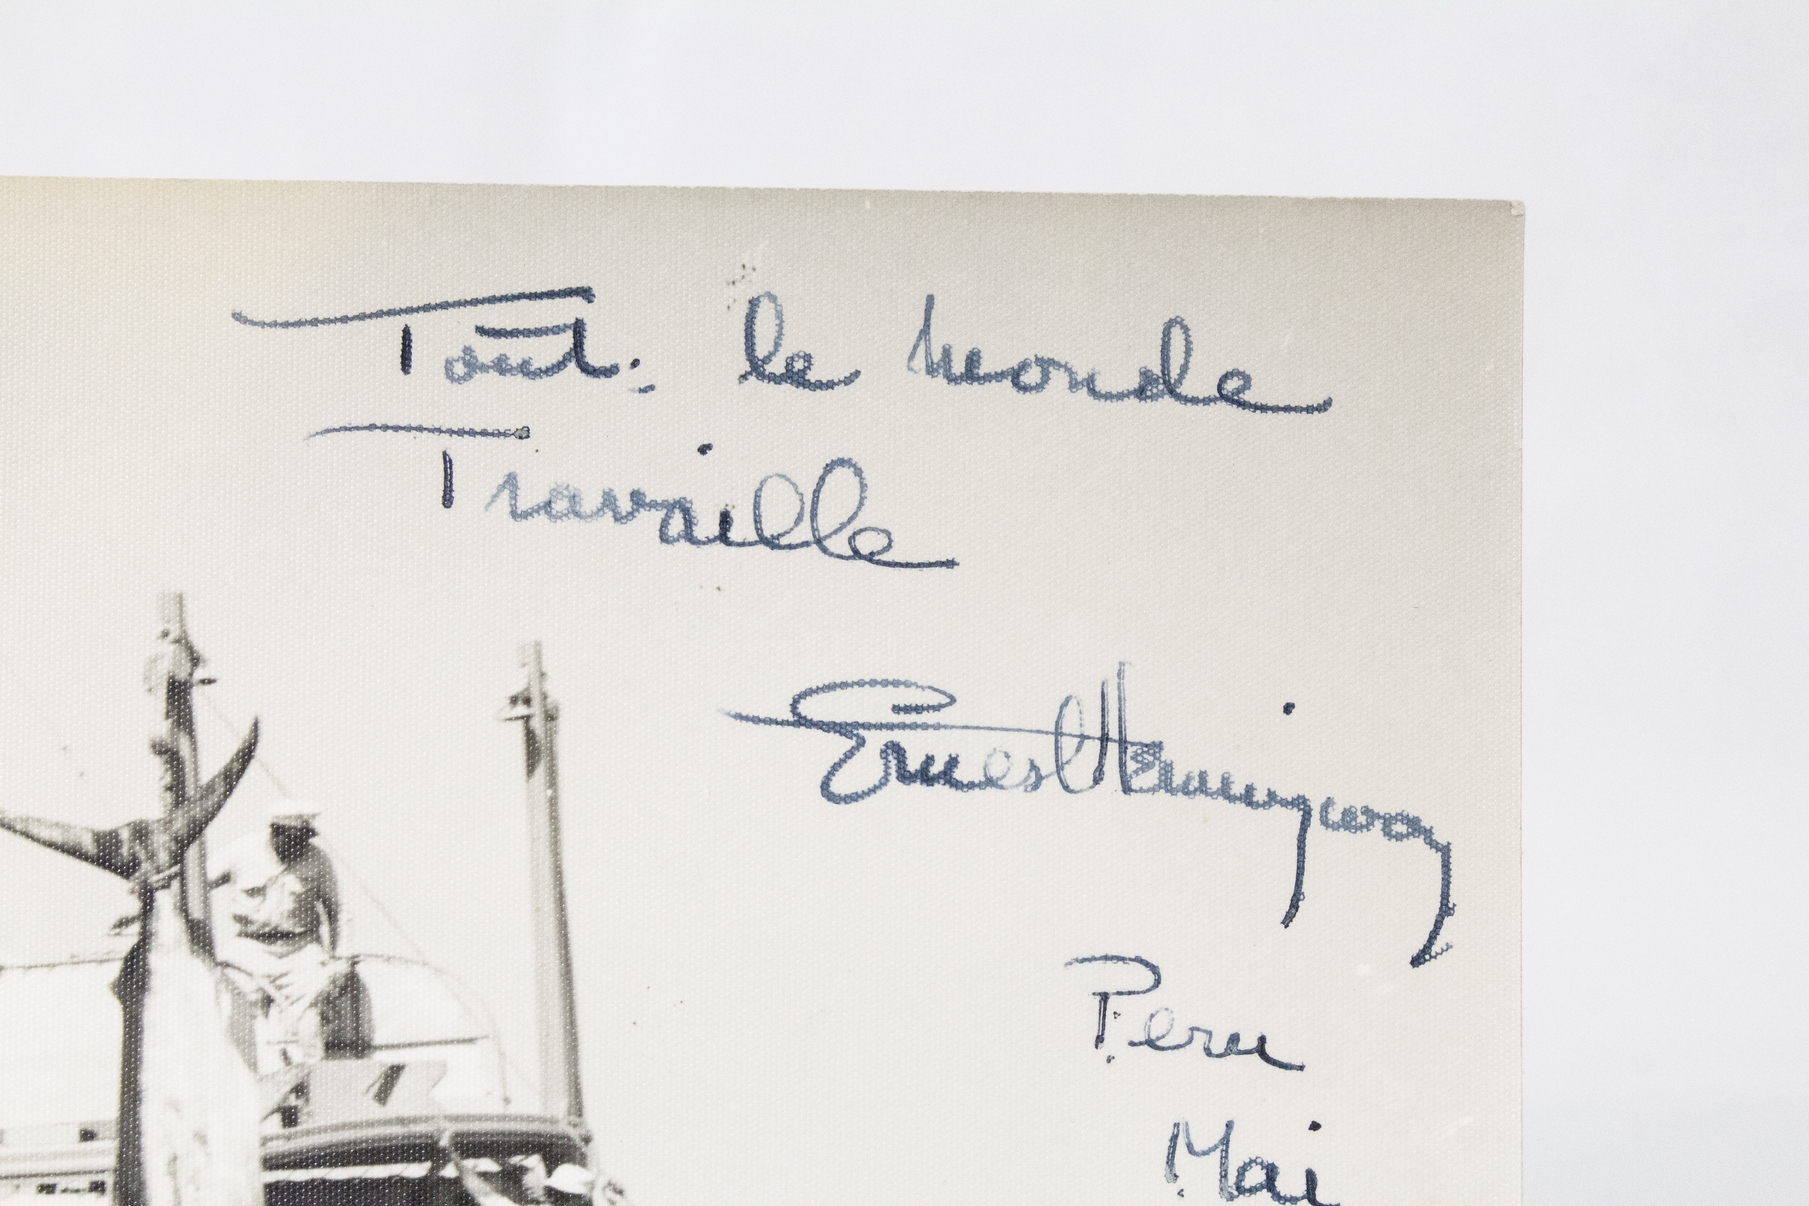 Tout le monde
Travaille
Ernest Hemingway
Peru
Mai